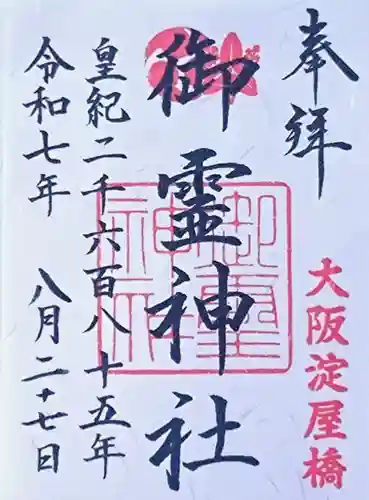 奉拝
大阪淀屋橋
御霊神社
御霊神社
皇紀二千六百八十五年
令和七年 八月二十七日